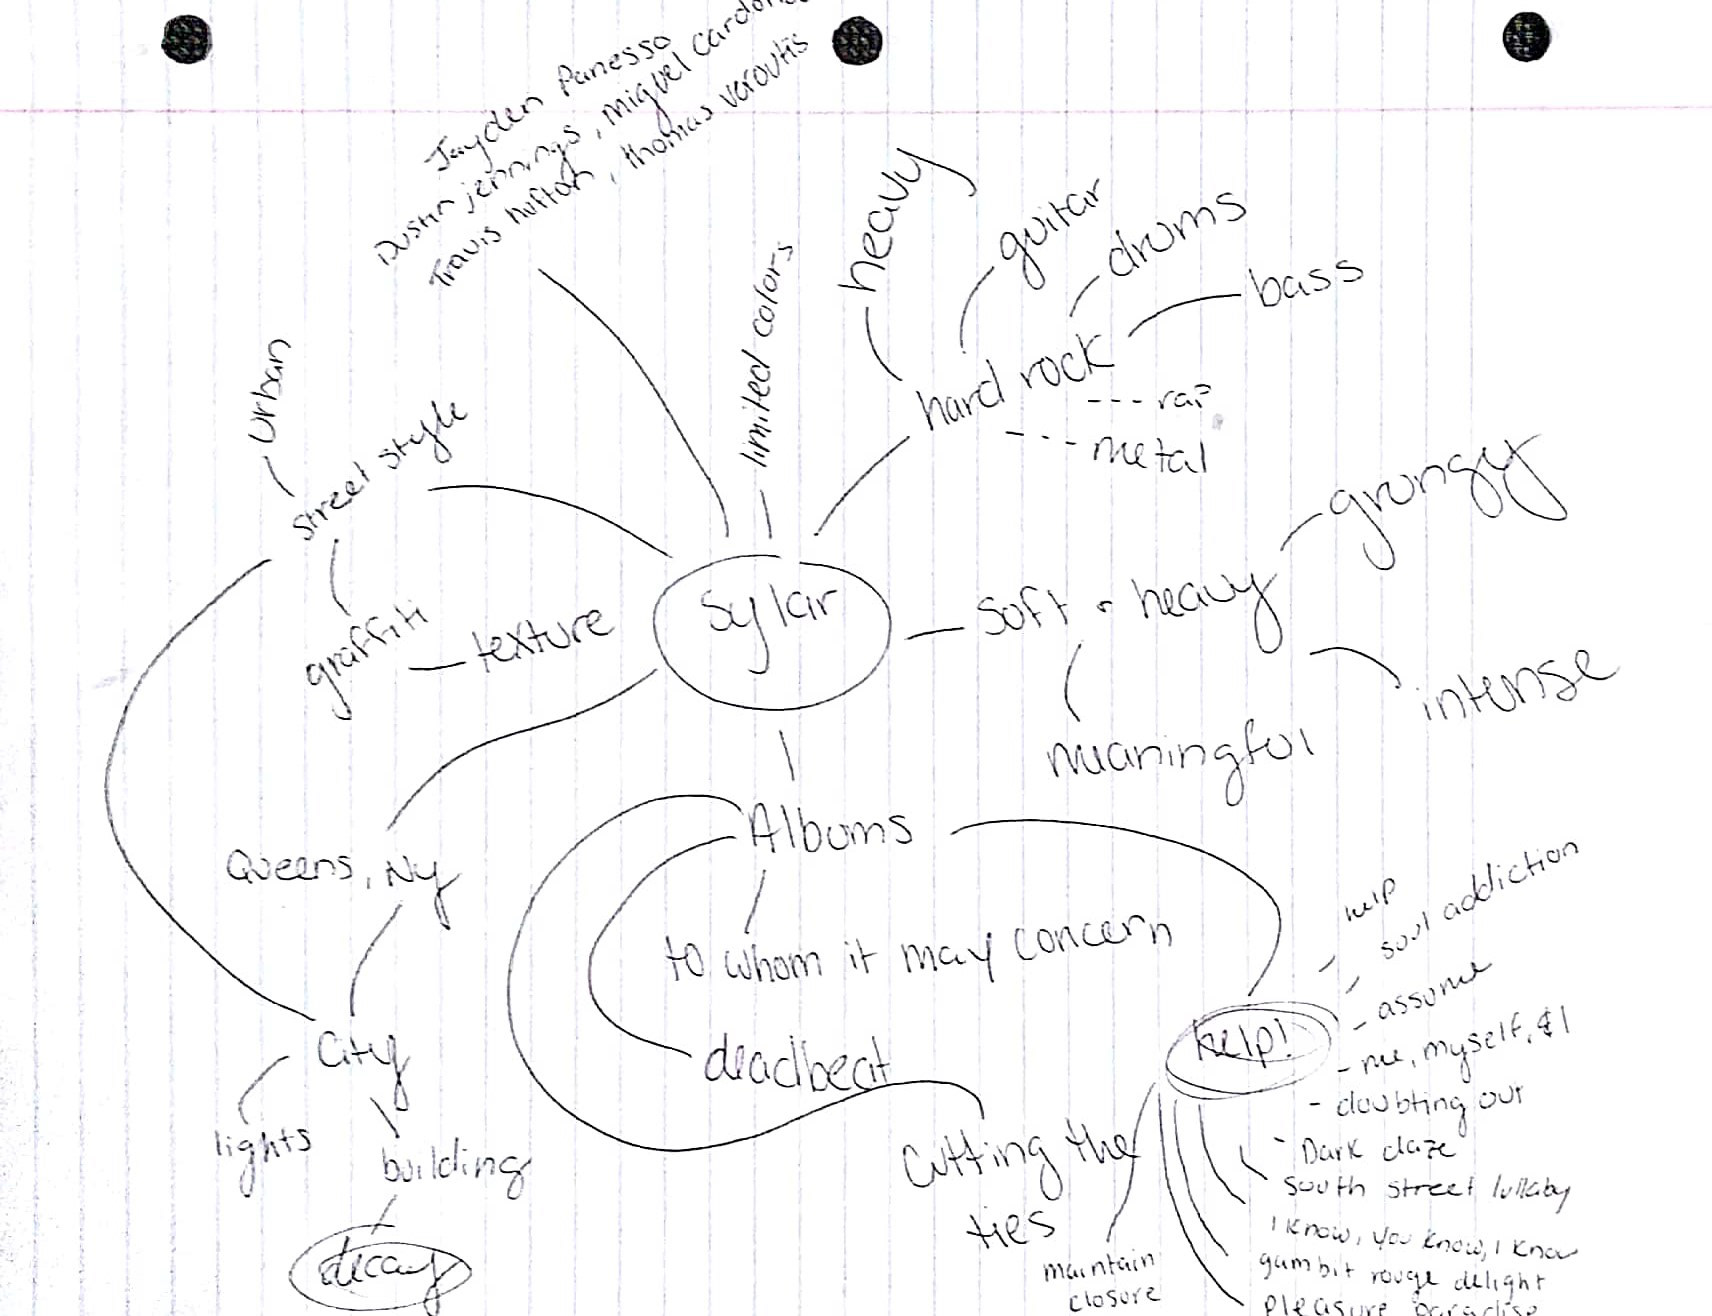 Jayden Panesso
Dustin jennings, miguel cardona
Travis hufton, thomas veroutis
heavy
guitar
drums
bass
limited colors
hard rock
--- rap
--- metal
Urban
street style
grungy
Sylar
soft + heavy
graffiti
texture
intense
meaningful
Albums
Queens, Ny
help
soul addiction
to whom it may concern
- assume
help!
- me, myself, & I
City
deadbeat
- doubting out
lights
building
Cutting the
ties
- Dark daze
South street lullaby
I know, you know, I know
decay
maintain
closure
gambit rouge delight
pleasure paradise